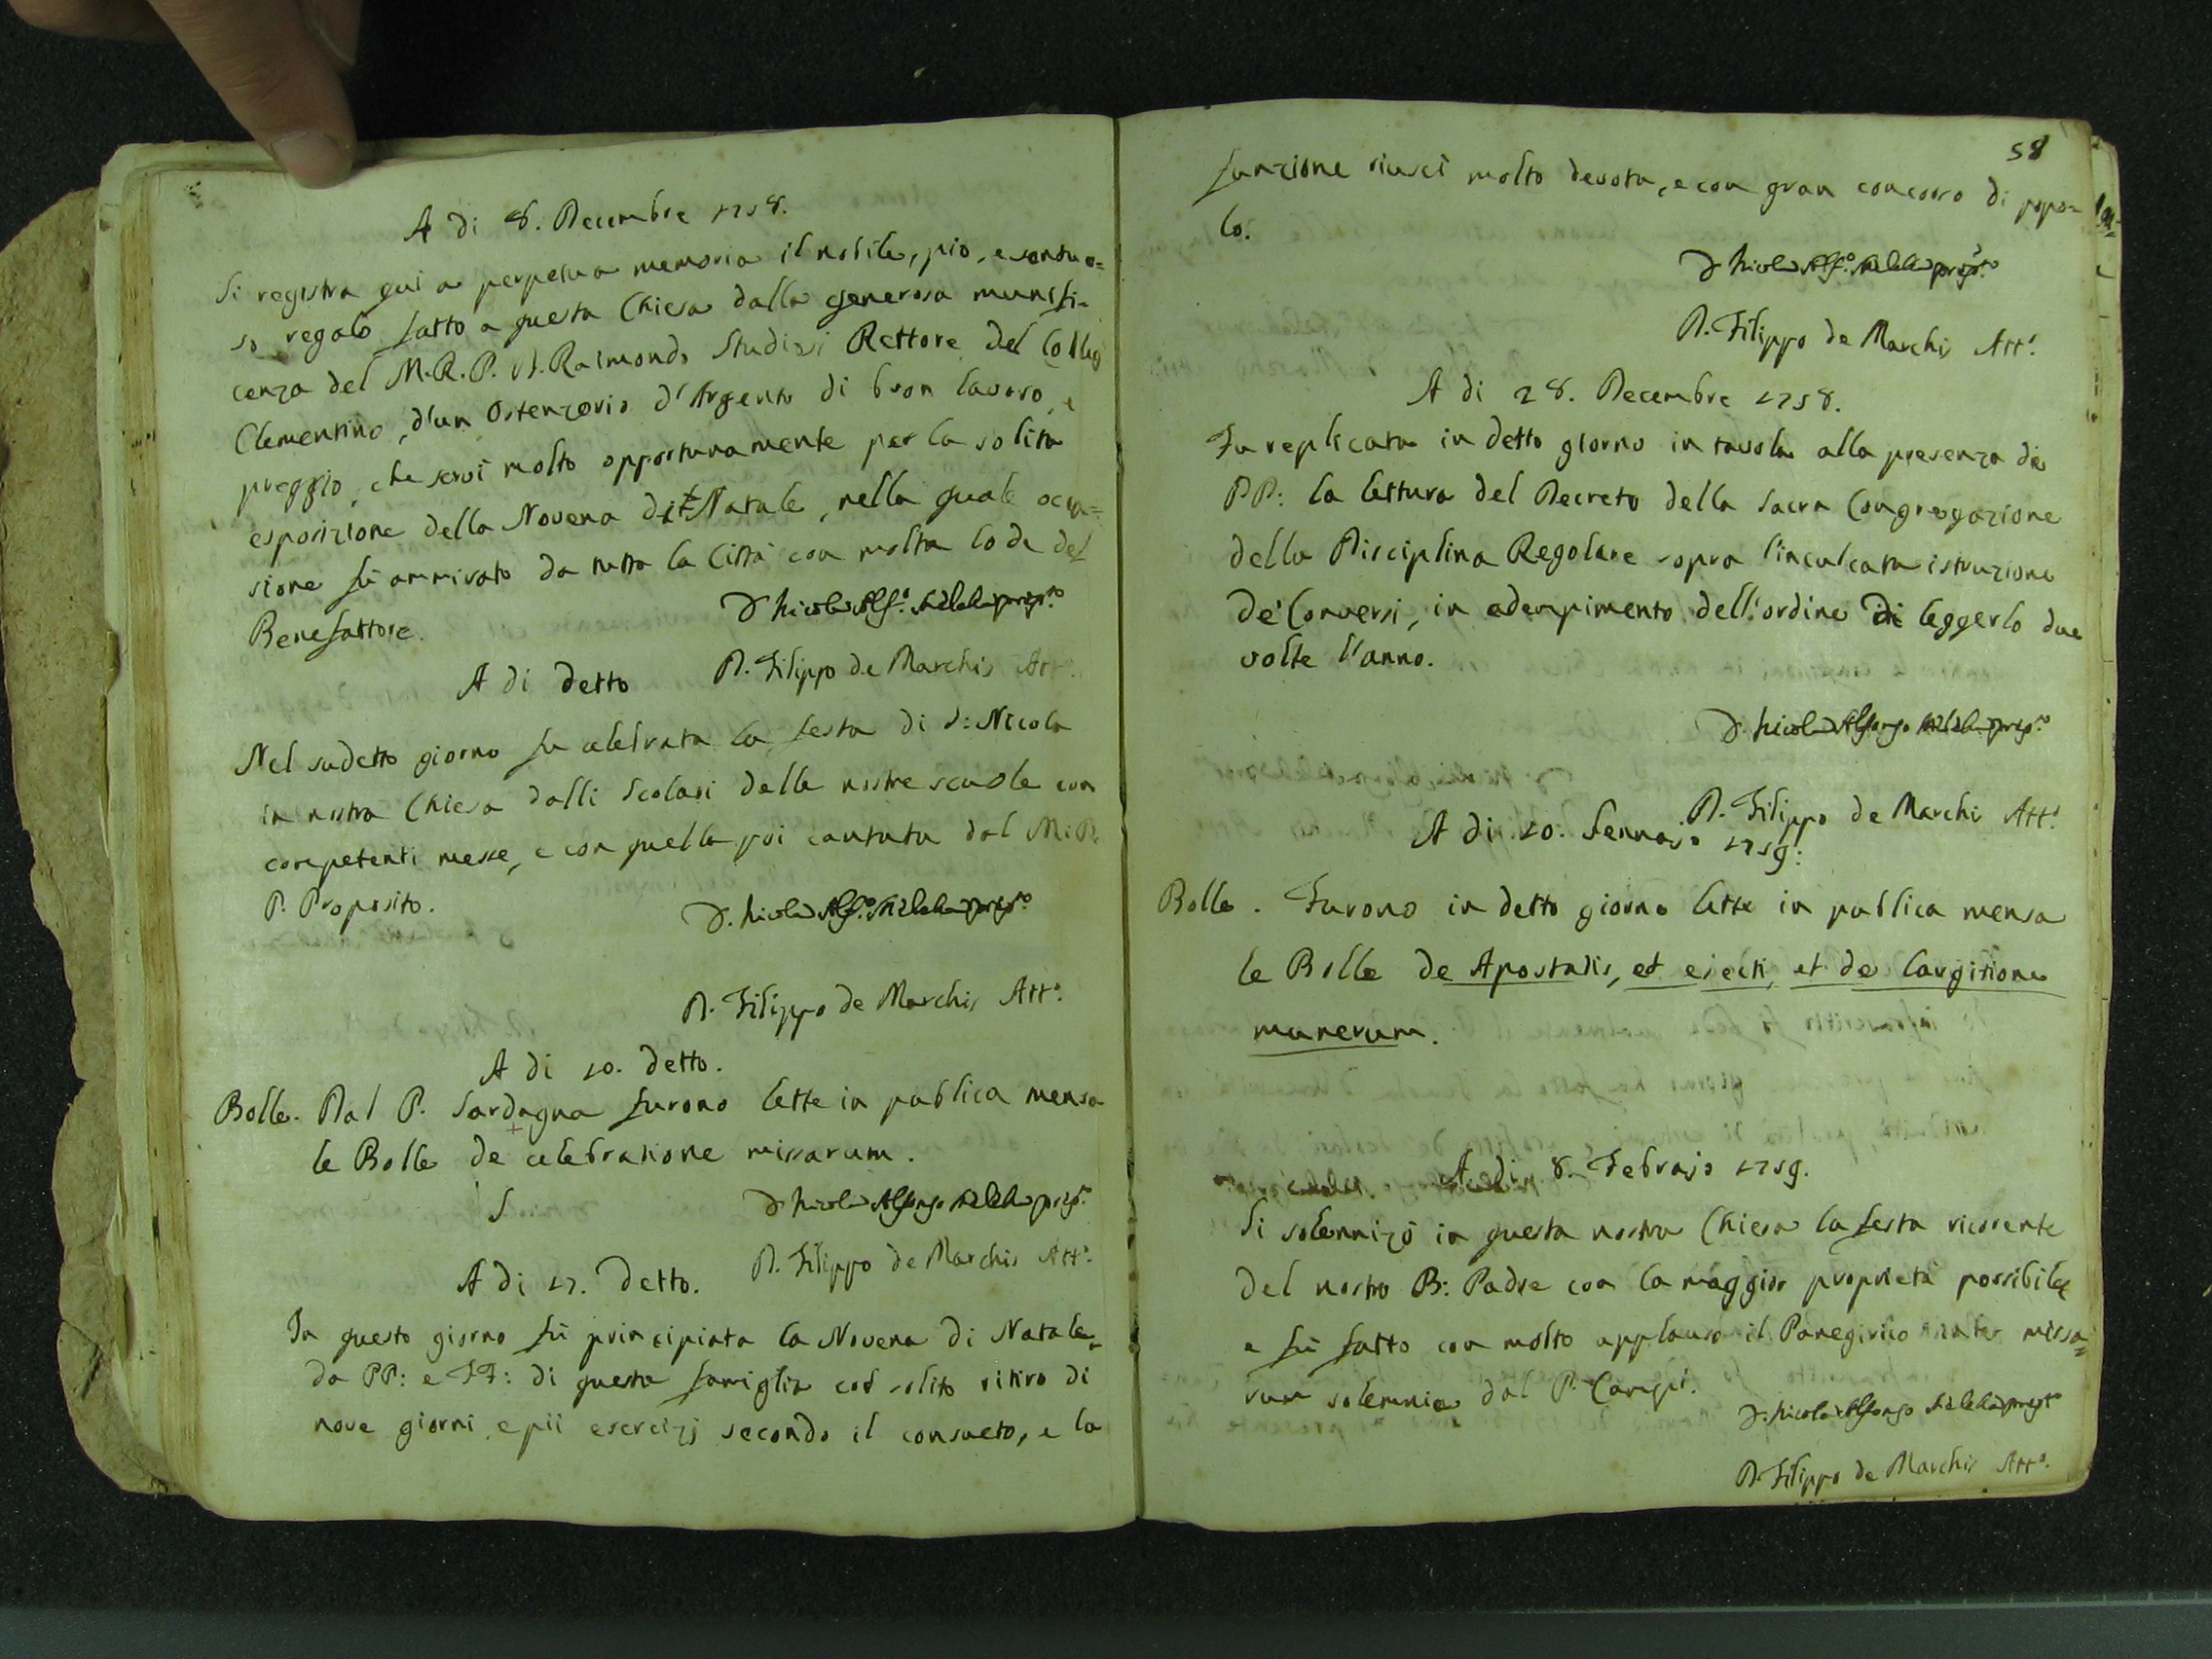 A di 8. Decembre 1758.
Si registra qui a perpetua memoria il nobile, pio, e sontuo=
so regalo fatto a questa Chiesa dalla generosa munifi-
cenza del M.R.P. D. Raimondo Studiosi Rettore del Colleg
Clementino, d'un Ostenzorio d'Argento di buon lavoro, e
preggio, che servì molto opportunamente per la solita
esposizione della Novena di Natale, nella quale occa=
sione fù ammirato da tutta la Città con molta lode del
Benefattore.
D Nicola Alf.o prep.to
A di detto
D. Filippo de Marchis Att.o
Nel sudetto giorno fu celebrata la festa di S: Nicola
in nostra Chiesa dalli Scolari delle nostre scuole con
competenti messe, e con quella poi cantata dal M.R.
P. Proposito.
D. Nicola Alf.o prep.to
D. Filippo de Marchis Att.o
A di 10. detto.
Bolle. Dal P. Sardagna furono lette in publica mensa
le Bolle de celebratione missarum.
S
D Nicola Alfonso prep.to
D. Filippo de Marchis Att.o
A di 17. detto.
In questo giorno fù principiata la Novena di Natale
da PP: e FF: di questa famiglia col solito ritiro di
nove giorni, e pii esercizj secondo il consueto, e la
58
funzione riuscì molto devota, e con gran concorso di popo=
lo.
D Nicola Alf.o prep.to
D. Filippo de Marchis Att.o
A di 28. Decembre 1758.
Fu replicata in detto giorno in tavola alla presenza de
PP: la lettura del Decreto della Sacra Congregazione
della Disciplina Regolare sopra l'inculcata istruzione
de' Conversi, in adempimento dell'ordine di leggerlo due
volte l'anno.
D. Nicola Alfonso prep.to
D. Filippo de Marchis Att.o
A di 10. Gennajo 1759:
Bolle. Furono in detto giorno lette in publica mensa
le Bolle de Apostatis, et ejecti, et de largitione
munerum.
A di 8. Febrajo 1759.
Si solennizò in questa nostra Chiesa la festa ricorente
del nostro B: Padre con la maggior proprietà possibile
e fù fatto con molto applauso il Panegirico inter missa=
rum solemnia dal P. Campi.
D. Nicola Alfonso prep.to
D. Filippo de Marchis Att.o